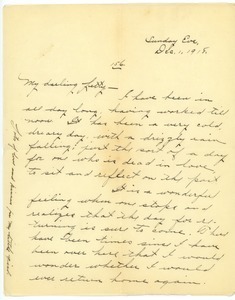 Sunday Eve,
Dec. 1, 1918.
My darling
I have been in
all day long, having worked till
noon. It has been a very cold,
dreary day, with a drizzly rain
falling; just the sort of a day
for one who is dead in love,
to sit and reflect on the past
It is a wonderful
feeling when one stops and
realizes that the day for re-
turning is sure to come. There
have been times since I have
been over here that I would
wonder whether I would
ever return home again.